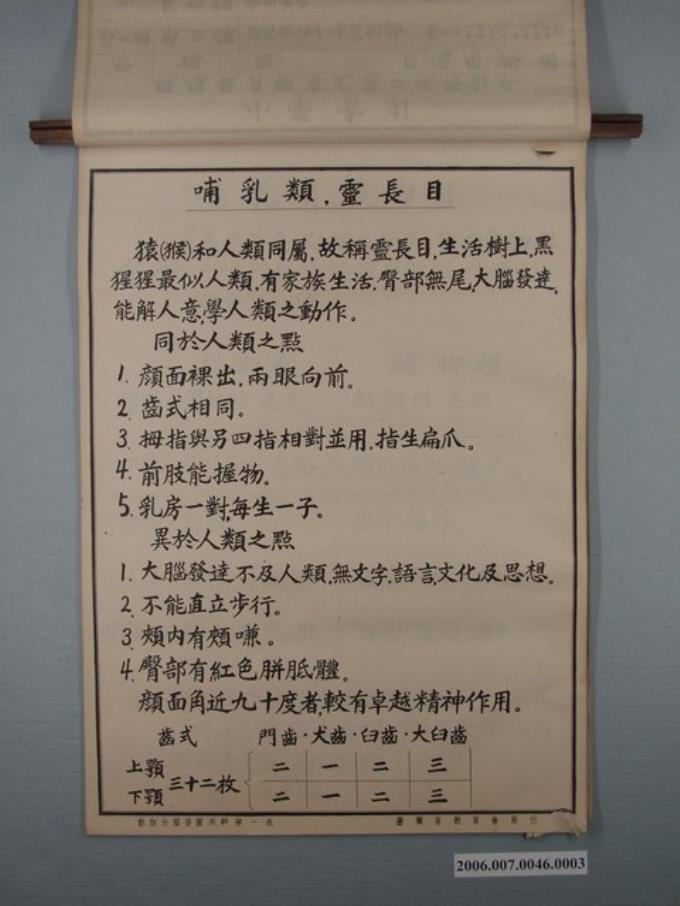 哺乳類,靈長目
猿(猴)和人類同屬,故稱靈長目,生活樹上,黑
猩猩最似人類,有家族生活,臀部無尾,大腦發達,
能解人意,學人類之動作。
同於人類之點
1. 顏面裸出,兩眼向前。
2. 齒式相同。
3. 拇指與另四指相對並用,指生扁爪。
4. 前肢能握物。
5. 乳房一對,每生一子。
異於人類之點
1. 大腦發達不及人類,無文字,語言,文化及思想。
2. 不能直立步行。
3. 頰内有頰嗛。
4. 臀部有紅色胼胝體。
顏面角近九十度者,較有卓越精神作用。
齒式 門齒·犬齒·臼齒·大臼齒
上顎 二 一 二 三
三十二枚
下顎 二 一 二 三
臺灣省教育會發行
2006.007.0046.0003